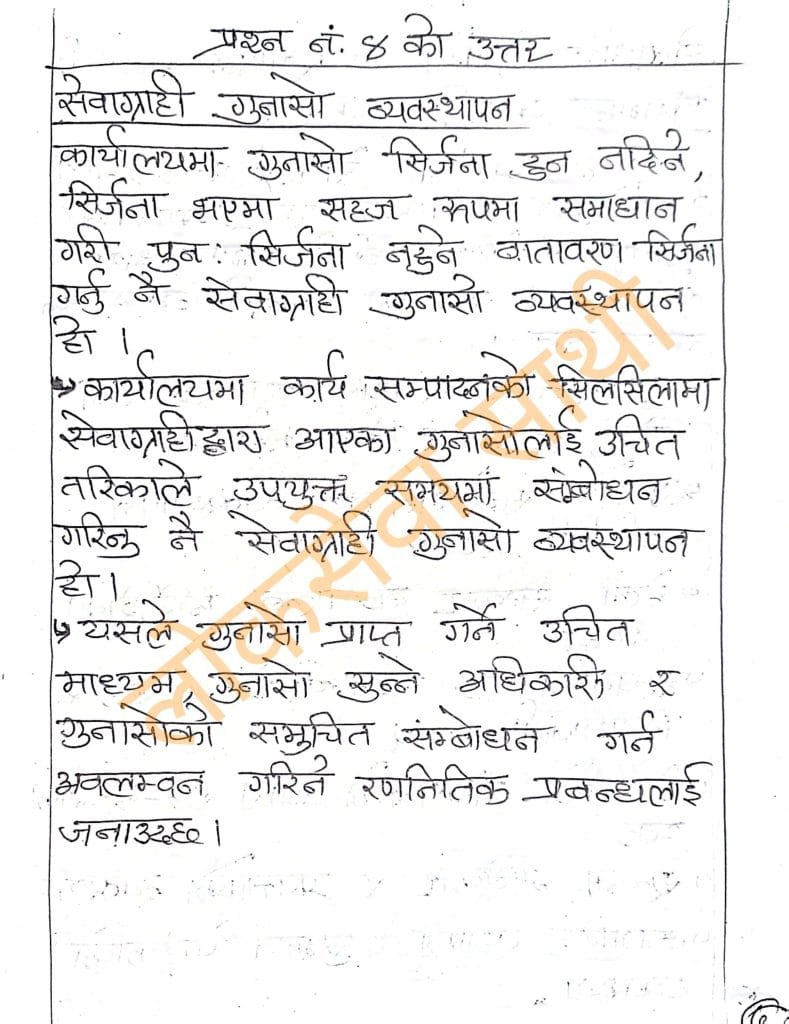 प्रश्न नं. ४ को उत्तर
सेवाग्राही गुनासो व्यवस्थापन
कार्यालयमा गुनासो सिर्जना हुन नदिने,
सिर्जना भएमा सहज रूपमा समाधान
गरी पुन: सिर्जना नहुने वातावरण सिर्जना
गर्नु नै सेवाग्राही गुनासो व्यवस्थापन
हो ।
कार्यालयमा कार्य सम्पादनको सिलसिलामा
सेवाग्राहीद्वारा आएका गुनासोलाई उचित
तरिकाले उपयुक्त समयमा संम्बोधन
गरिनु नै सेवाग्राही गुनासो व्यवस्थापन
हो ।
यसले गुनासो प्राप्त गर्ने उचित
माध्यम, गुनासो सुन्ने अधिकारी र
गुनासोको समुचित संम्बोधन गर्न
अवलम्वन गरिने रणनितिक प्रबन्धलाई
जनाउदछ ।
लोकसेवा साथी